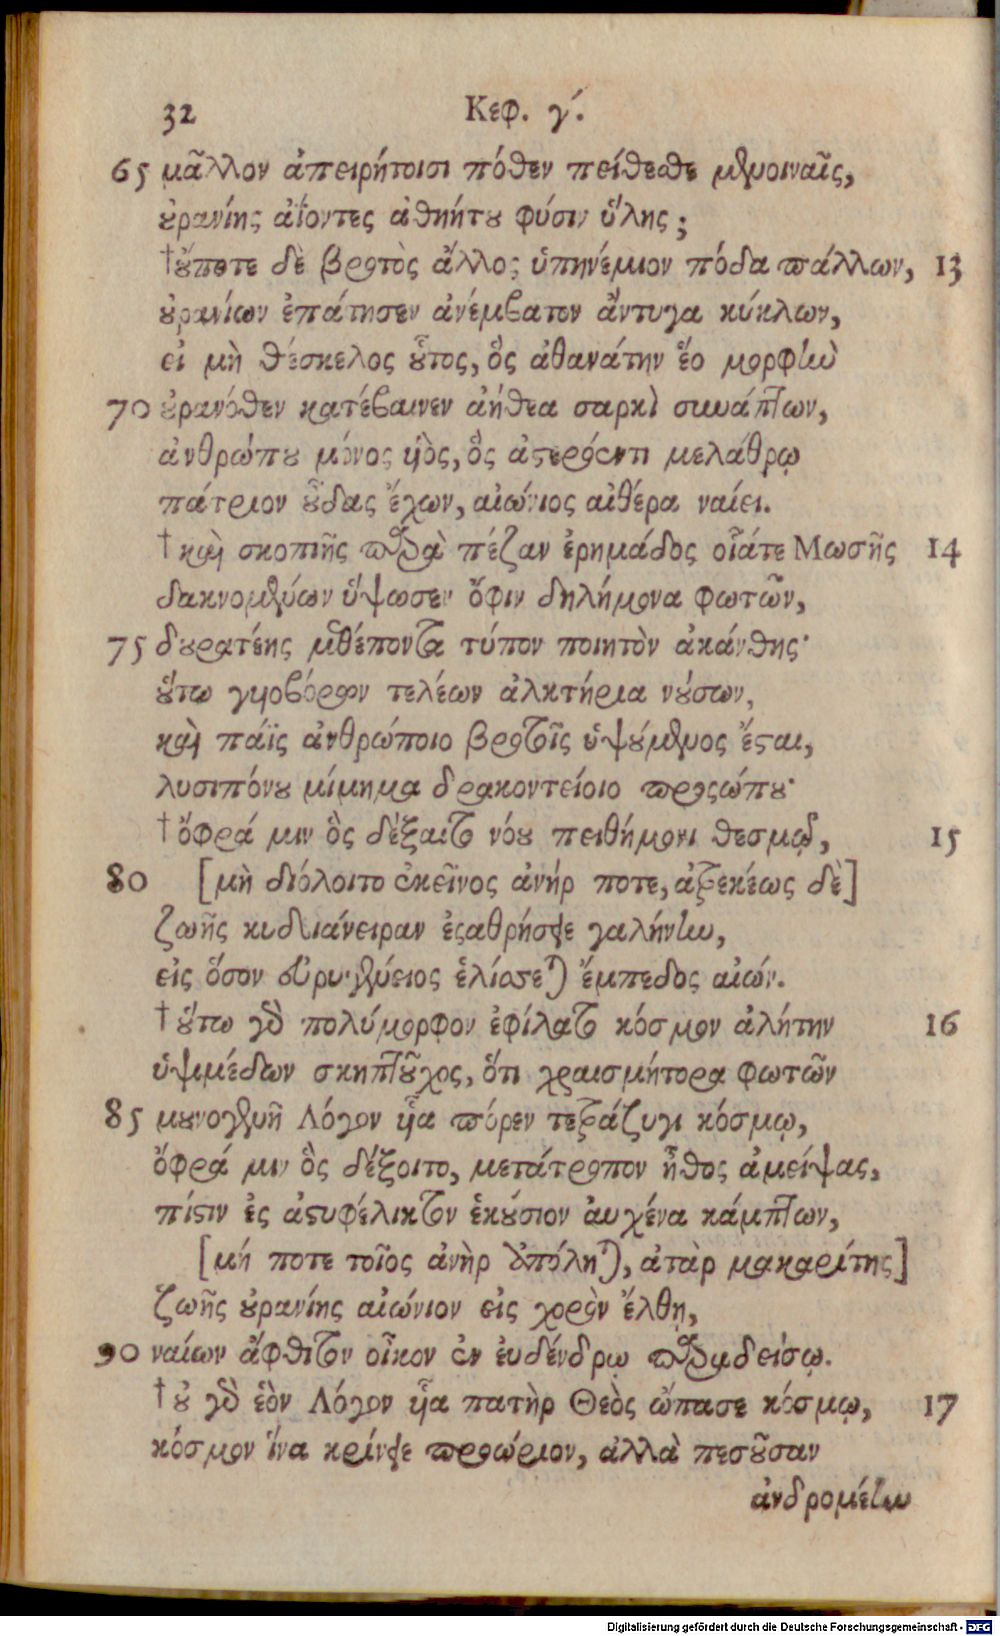 32 Κεφ. γ´.
65 μᾶλλον ἀπειρήτοισι πόθεν πείθεσθε μενοιναῖς,
οὐρανίης ἀΐοντες ἀθηήτου φύσιν ὕλης;
†οὔποτε δὲ βροτὸς ἄλλος ὑπηνέμιον πόδα πάλλων, 13
οὐρανίων ἐπάτησεν ἀνέμβατον ἄντυγα κύκλων,
εἰ μὴ θέσκελος οὗτος, ὃς ἀθανάτην ἕο μορφὴν
70 οὐρανόθεν κατέβαινεν ἀήθεα σαρκὶ συνάπτων,
ἀνθρώπου μόνος υἱὸς, ὃς ἀστερόεντι μελάθρῳ
πάτριον οὖδας ἔχων, αἰώνιος αἰθέρα ναίει.
†καὶ σκοπιῆς παρὰ πέζαν ἐρημάδος οἷάτε Μωσῆς 14
δακνομένων ὕψωσεν ὄφιν δηλήμονα φωτῶν,
75 δουρατέης μεθέποντα τύπον ποιητὸν ἀκάνθης·
οὕτω γυιοβόρων τελέων ἀλκτήρια νούσων,
καὶ πάϊς ἀνθρώποιο βροτοῖς ὑψούμενος ἔσται,
λυσιπόνου μίμημα δρακοντείοιο προσώπου·
†ὄφρά μιν ὃς δέξαιτο νόου πειθήμονι θεσμῷ, 15
80 [μὴ διόλοιτο ἐκεῖνος ἀνήρ ποτε, ἀτρεκέως δὲ]
ζωῆς κυδιάνειραν ἐσαθρήσειε γαλήνην,
εἰς ὅσον εὐρυγένειος ἑλίσσεται ἔμπεδος αἰών.
†οὕτω γὰρ πολύμορφον ἐφίλατο κόσμον ἀλήτην 16
ὑψιμέδων σκηπτοῦχος, ὅτι χραισμήτορα φωτῶν
85 μουνογενῆ Λόγον υἷα πόρεν τετράζυγι κόσμῳ,
ὄφρά μιν ὃς δέξοιτο, μετάτροπον ἦθος ἀμείψας,
πίστιν ἐς ἀστυφέλικτον ἑκούσιον αὐχένα κάμπτων,
[μή ποτε τοῖος ἀνὴρ ἀπόληται, ἀτὰρ μακαρίτης]
ζωῆς οὐρανίης αἰώνιον εἰς χορὸν ἔλθῃ,
90 ναίων ἄφθιτον οἶκον ἐν εὐδένδρῳ παραδείσῳ.
†οὐ γὰρ ἑὸν Λόγον υἷα πατὴρ Θεὸς ὤπασε κόσμῳ, 17
κόσμον ἵνα κρίνειε προώριον, ἀλλὰ πεσοῦσαν
ἀνδρομέην
Digitalisierung gefördert durch die Deutsche Forschungsgemeinschaft - DFG